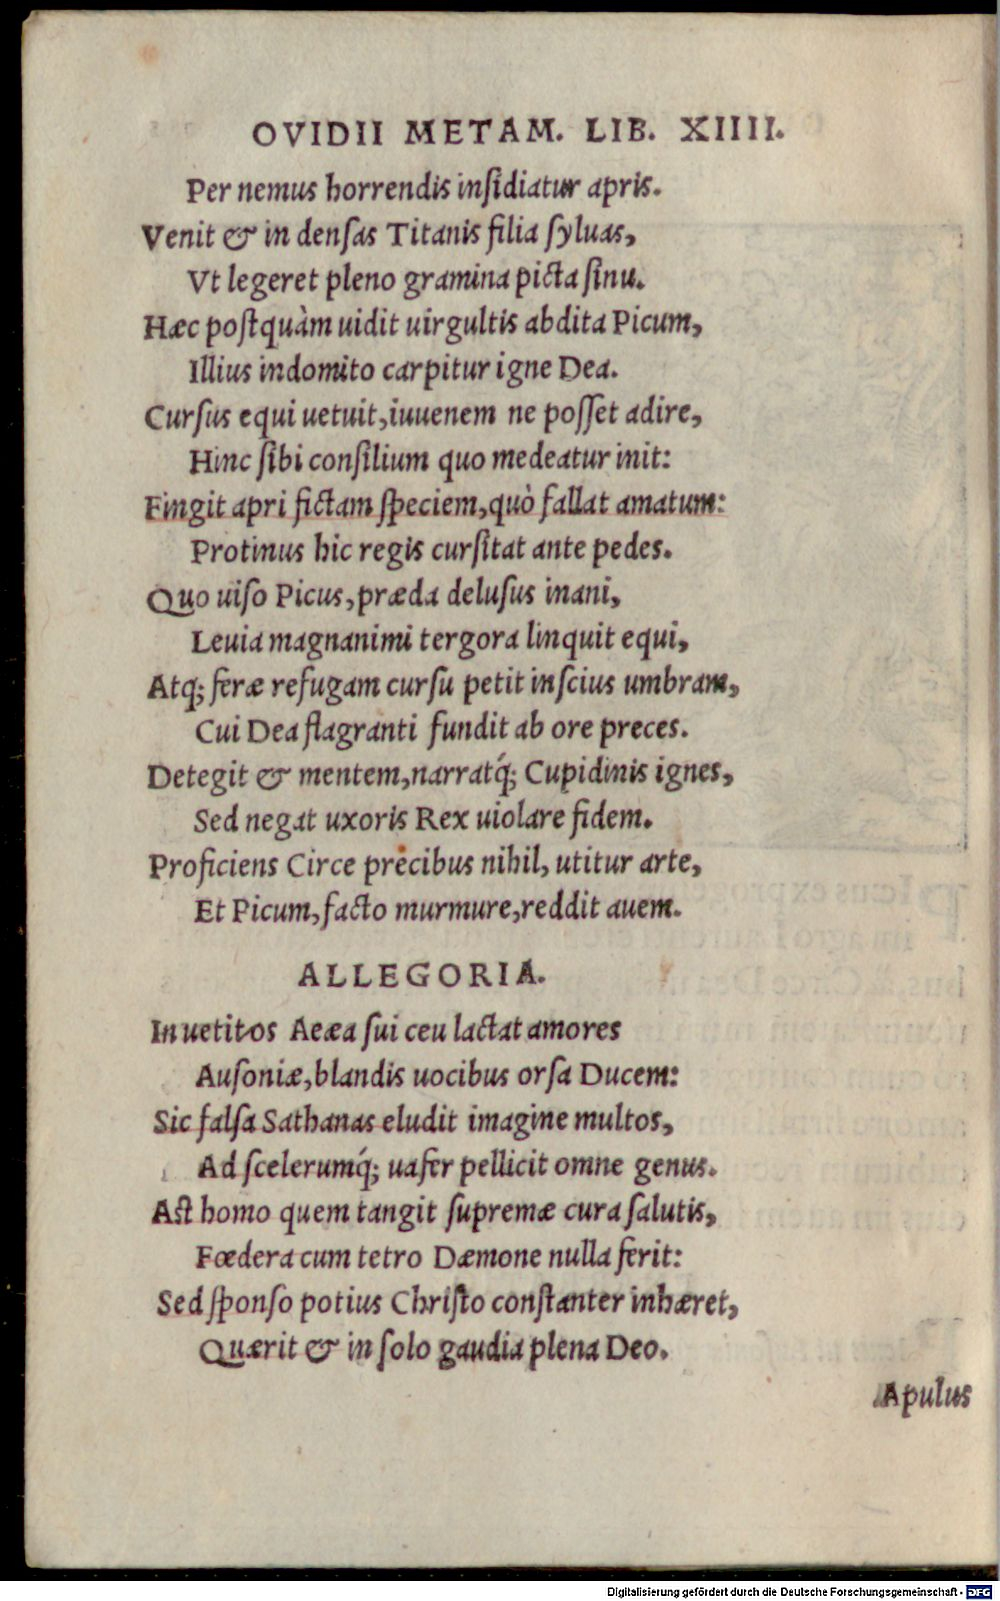 OVIDII METAM. LIB. XIIII.
Per nemus horrendis insidiatur apris.
Venit & in densas Titanis filia syluas,
Vt legeret pleno gramina picta sinu.
Hæc postquàm uidit uirgultis abdita Picum,
Illius indomito carpitur igne Dea.
Cursus equi uetuit, iuuenem ne posset adire,
Hinc sibi consilium quo medeatur init:
Fingit apri fictam speciem, quò fallat amatum:
Protinus hic regis cursitat ante pedes.
Quo uiso Picus, præda delusus inani,
Leuia magnanimi tergora linquit equi,
Atq; feræ refugam cursu petit inscius umbram,
Cui Dea flagranti fundit ab ore preces.
Detegit & mentem, narratq́; Cupidinis ignes,
Sed negat uxoris Rex uiolare fidem.
Proficiens Circe precibus nihil, utitur arte,
Et Picum, facto murmure, reddit auem.
ALLEGORIA.
In uetitos Aeæa sui ceu lactat amores
Ausoniæ, blandis uocibus orsa Ducem:
Sic falsa Sathanas eludit imagine multos,
Ad scelerumq́; uafer pellicit omne genus.
Ast homo quem tangit supremæ cura salutis,
Fœdera cum tetro Dæmone nulla ferit:
Sed sponso potius Christo constanter inhæret,
Quærit & in solo gaudia plena Deo.
Apulus
Digitalisierung gefördert durch die Deutsche Forschungsgemeinschaft - DFG